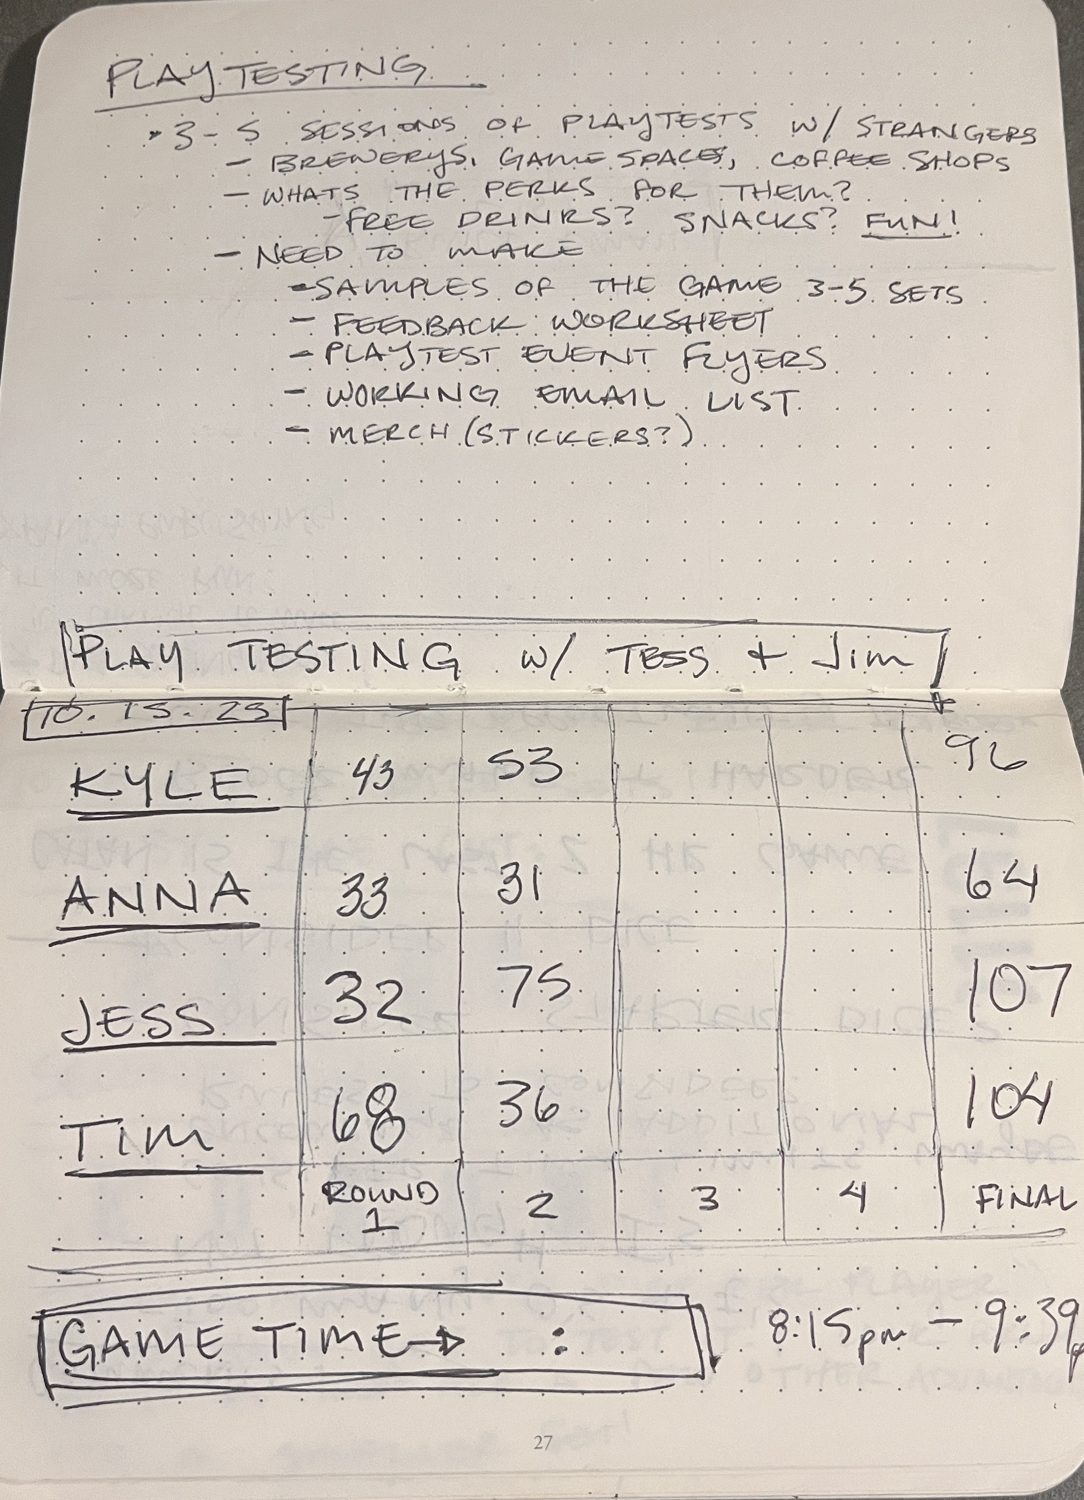 PLAYTESTING
• 3-5 SESSIONS OF PLAYTESTS W/ STRANGERS
- BREWERYS, GAME SPACES, COFFEE SHOPS
- WHATS THE PERKS FOR THEM?
- FREE DRINKS? SNACKS? FUN!
- NEED TO MAKE
- SAMPLES OF THE GAME 3-5 SETS
- FEEDBACK WORKSHEET
- PLAYTEST EVENT FLYERS
- WORKING EMAIL LIST
- MERCH (STICKERS?)
PLAY TESTING W/ TESS + Jim
10.15.25
KYLE 43 53 96
ANNA 33 31 64
JESS 32 75 107
TIM 68 36 104
ROUND 1 2 3 4 FINAL
GAME TIME → : 8:15pm - 9:39p
27